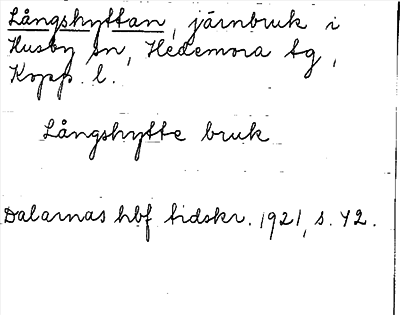 Långshyttan, järnbruk i
Husby sn, Hedemora tg,
Kopp. l.
Långshytte bruk
Dalarnas hbf tidskr. 1921, s. 42.